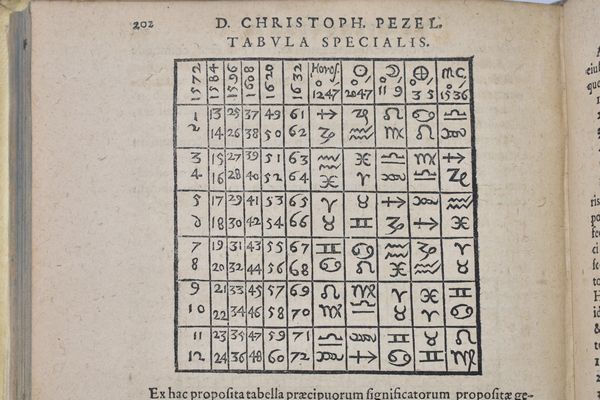 202 D. CHRISTOPH. PEZEL.
TABVLA SPECIALIS.
1572 1584 1596 1608 1620 1632 Horoſ. ☉ ☽ ⊕ M.C.
12 47 20 47 11 9 3 5 15 36
1 13 25 37 49 61 ♐ ♑ ♌ ♋ ♎
2 14 26 38 50 62 ♑ ♒ ♍ ♌ ♏
3 15 27 39 51 63 ♒ ♓ ♎ ♍ ♐
4 16 28 40 52 64 ♓ ♈ ♏ ♎ ♑
5 17 29 41 53 65 ♈ ♉ ♐ ♏ ♒
6 18 30 42 54 66 ♉ ♊ ♑ ♐ ♓
7 19 31 43 55 67 ♊ ♋ ♒ ♑ ♈
8 20 32 44 56 68 ♋ ♌ ♓ ♒ ♉
9 21 33 45 57 69 ♌ ♍ ♈ ♓ ♊
10 22 34 46 58 70 ♍ ♎ ♉ ♈ ♋
11 23 35 47 59 71 ♎ ♏ ♊ ♉ ♌
12 24 36 48 60 72 ♏ ♐ ♋ ♊ ♍
Ex hac propoſita tabella præcipuorum ſignificatorum propoſitæ ge-